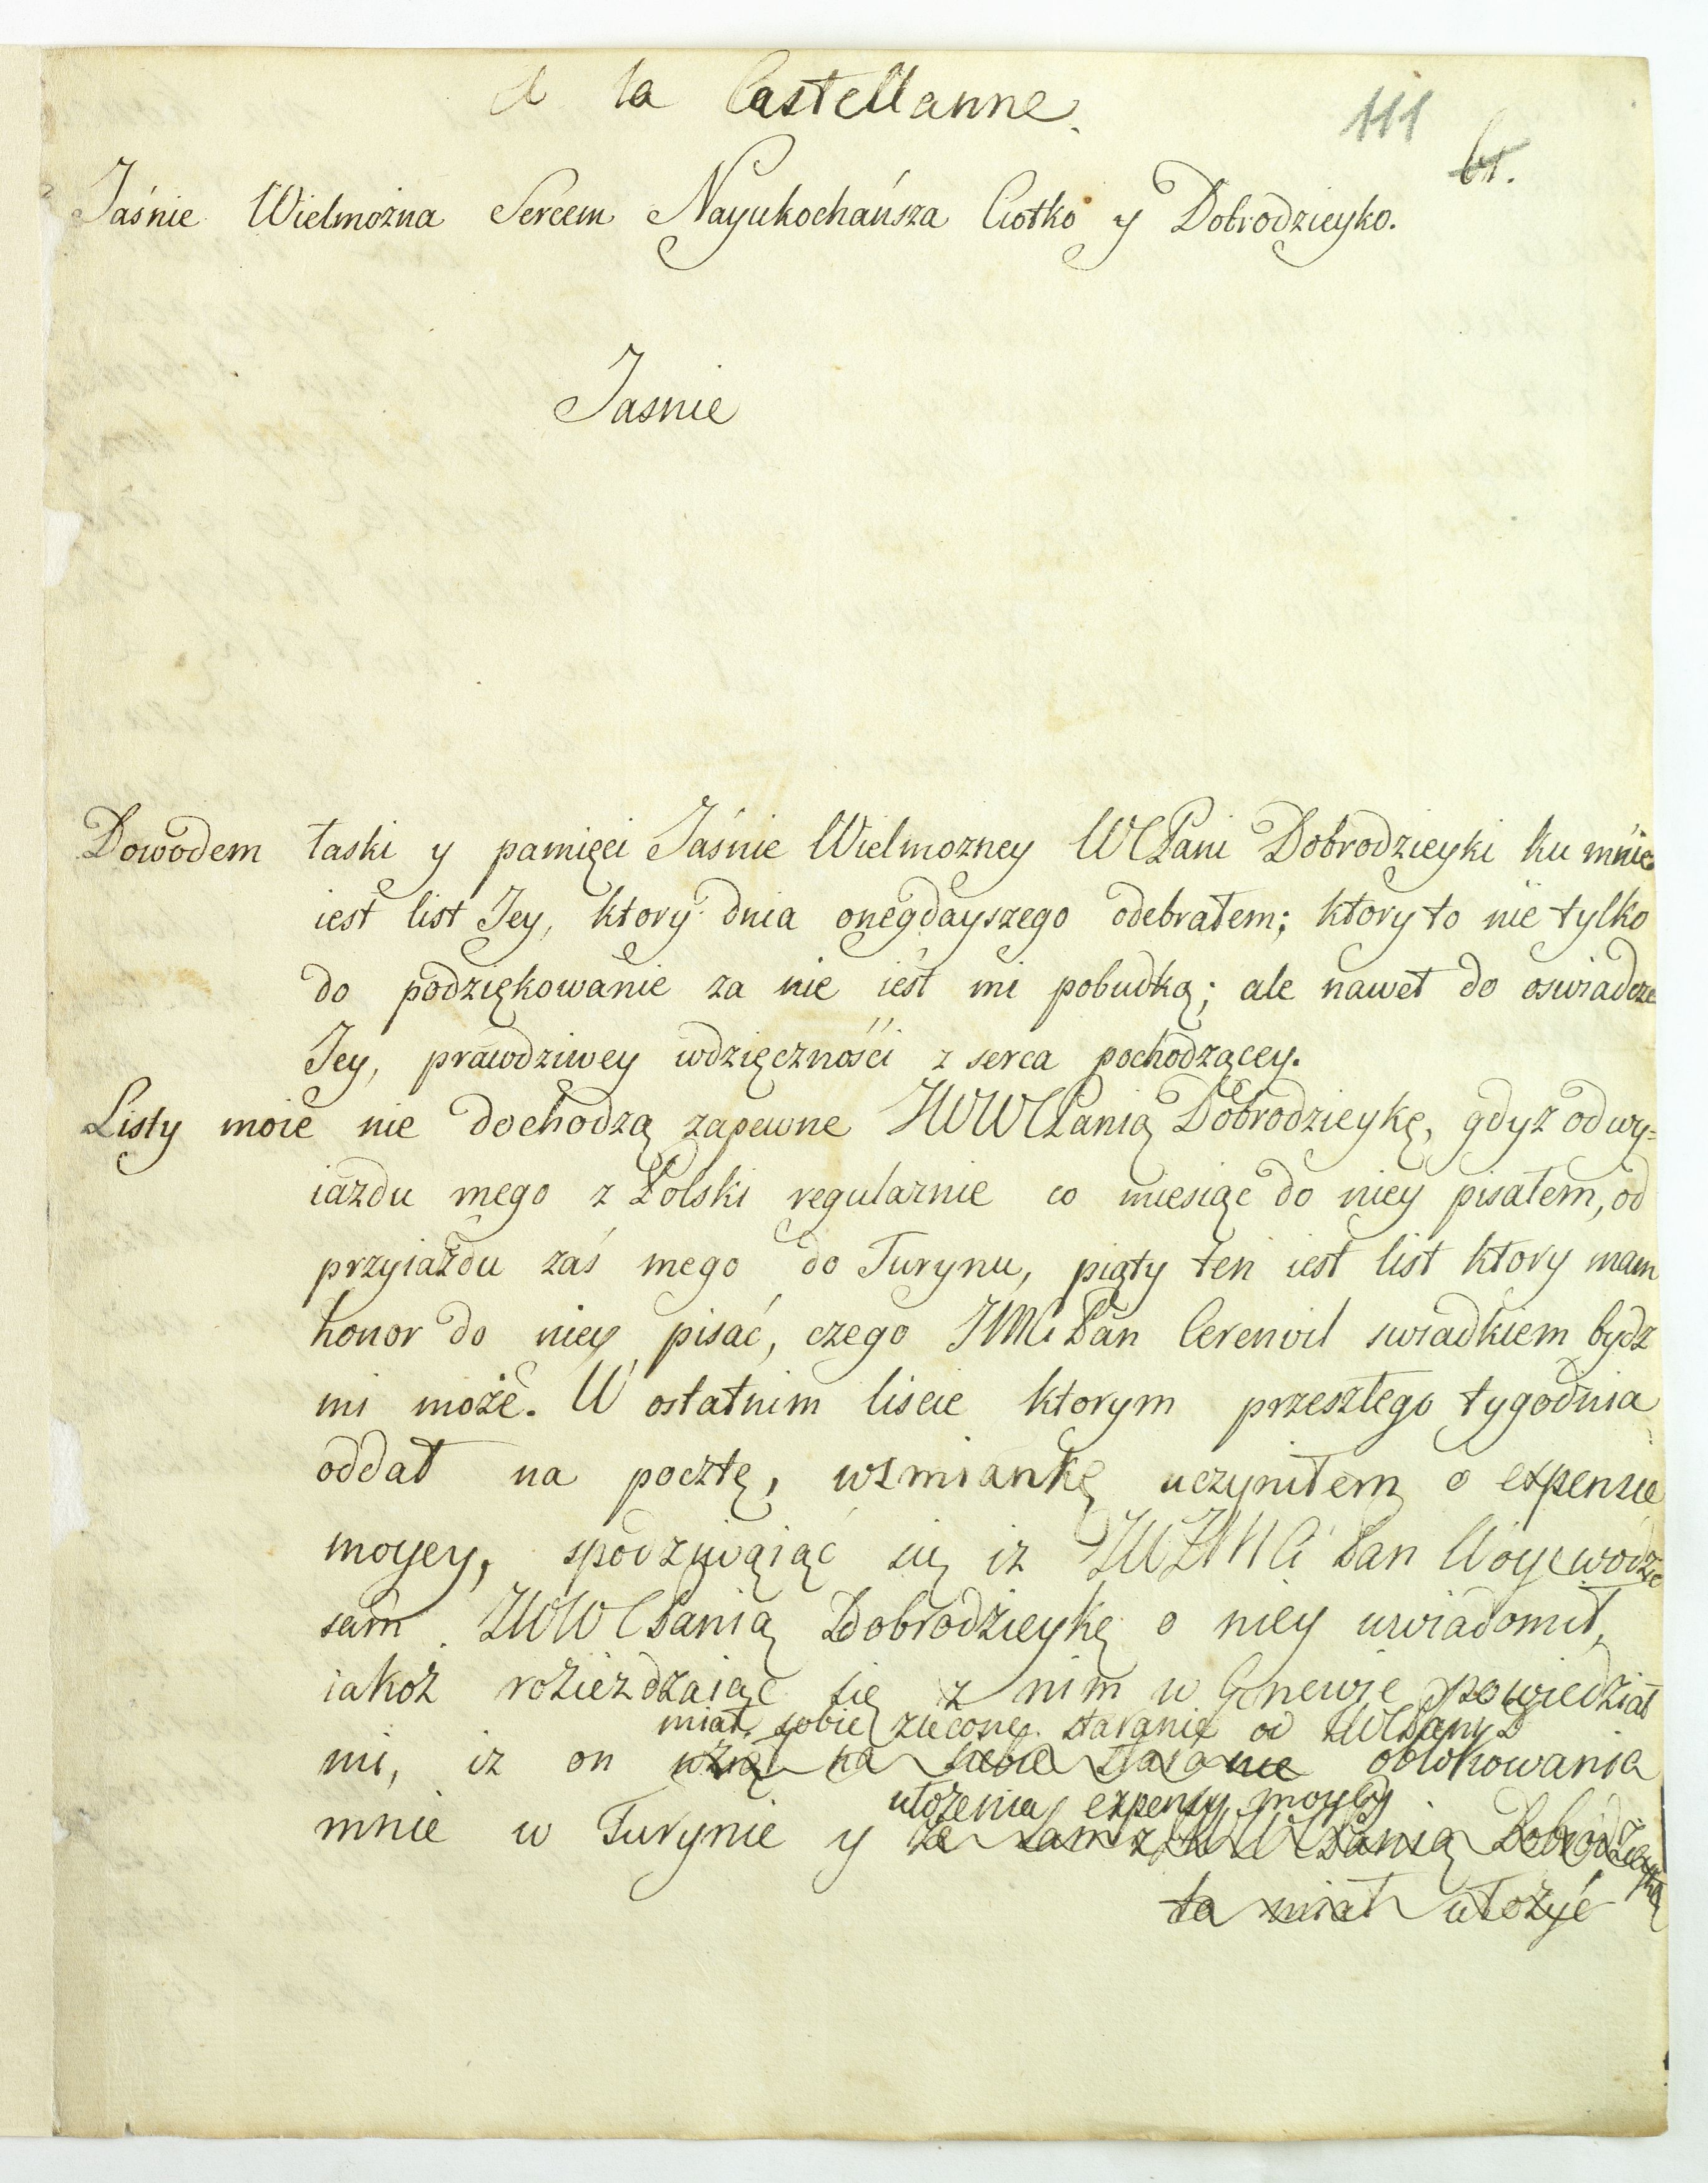 A la Castellanne.
111
61.
Jaśnie Wielmożna Sercem Nayukochańsza Ciotko y Dobrodzieyko.
Jasnie
Dowodem łaski y pamięci Jáśnie Wielmozney WCPani Dobrodzieyki ku mnie
iest list Jey, ktory dnia onegdayszego odebrałem; ktory to nie tylko
do podziękowanie za nie iest mi pobudką; ale nawet do oswiadcze
Jey, prawdziwey wdzięcznośći z serca pochodzącey.
Listy moie nie dochodzą zapewne JWWCPanią Dobrodzieykę, gdyz od wy=
iazdu mego z Polski regularnie co miesiąc do niey pisałem, od
przyiazdu zaś mego do Turynu, piąty ten iest list ktory mam
honor do niey pisać, czego JMCi Pan Cerenvil swiadkiem bydz
mi może. W ostatnim liscie ktorym przeszłego tygodnia
oddał na pocztę, wzmiankę uczyniłem o expensie
moyey, spodziwaiąć się iz JWJMCi Pan Woyewodze
sam JWWCPanią Dobrodzieykę o niey uwiadomił,
iakoż rozieżdzaiąc się z nim w Genewie powiedział
miał sobie zlecone staranie od JWCPany D
mi, iz on wziął na siebie staranie oblokowania
ułożenia expensy moyey
mnie w Turynie y ze sam z JWWCPanią Dobrodzieyką
ta miał ułożyć